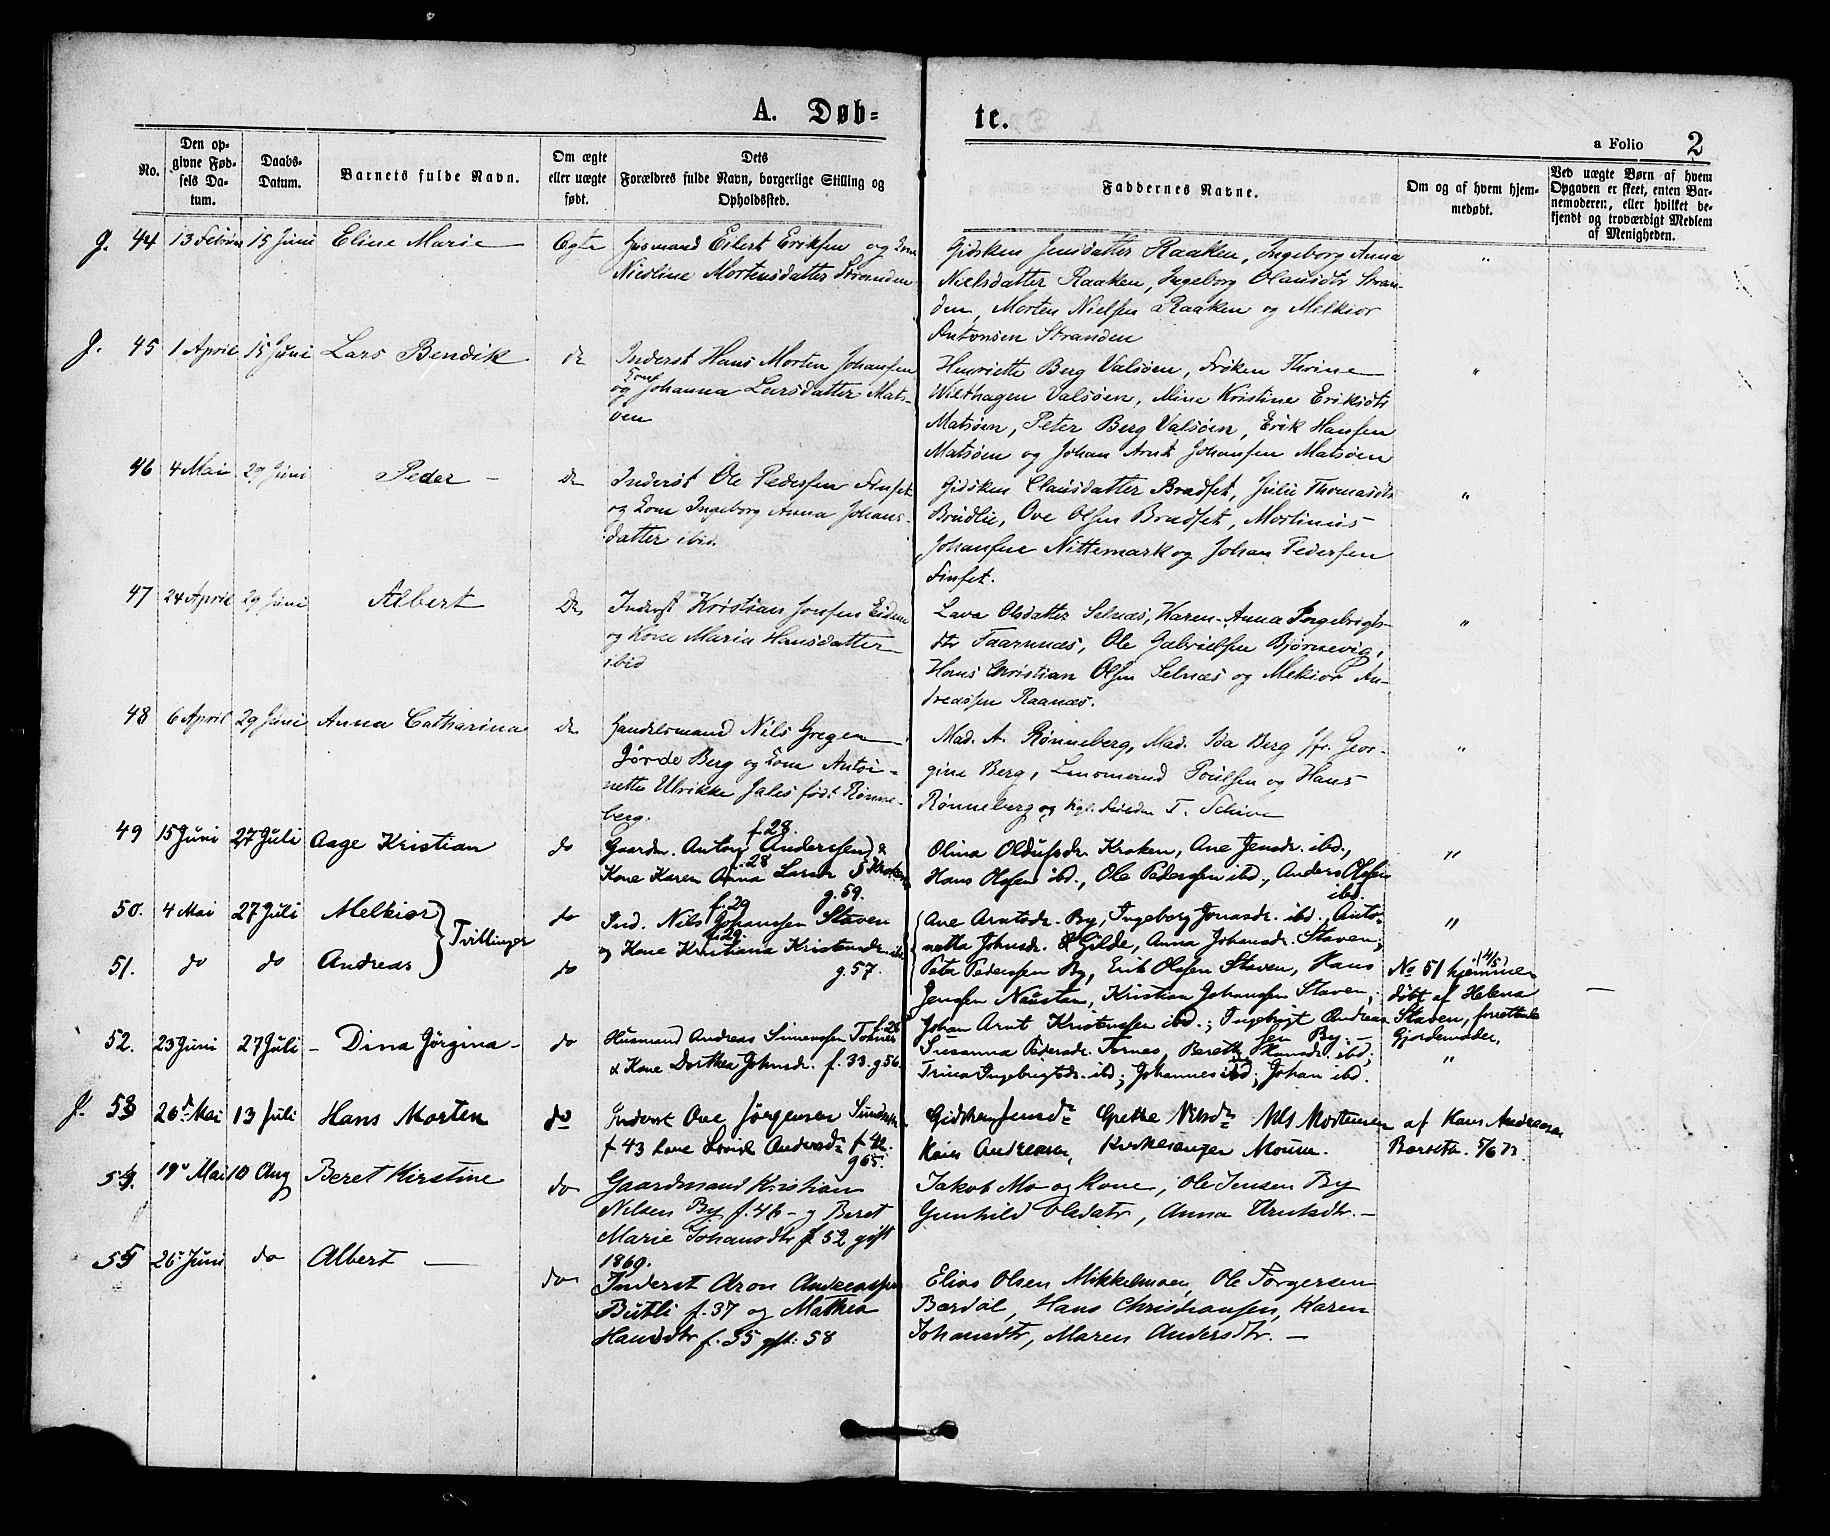 A. Døb-
te.
a Folio 2
No.
Den op-
givne Fød-
sels Da-
tum.
Daabs-
Datum.
Barnets fulde Navn.
Om ægte
eller uægte
født.
Dets
Forældres fulde Navn, borgerlige Stilling og
Opholdssted.
Faddernes Navne.
Om og af hvem hjem-
medøbt.
Ved uægte Børn af hvem
Opgaven er skeet, enten Bar-
nemoderen, eller hvilket be-
kjendt og troværdigt Medlem
af Menigheden.
g. 44 13 Februar 15 Juni Eline Marie Ægte
Husmand Eilert Eriksen og Kone
Nicoline Mortensdatter Stranden
Gidsken Jensdatter Raaken, Ingeborg Anna
Nielsdatter Raaken, Ingeborg Olausdtr Stran-
den, Morten Nielsen Raaken og Melkior
Antonsen Stranden
"
g. 45 1 April 15 Juni Lars Bendik do
Inderst Hans Morten Johansen
og Kone Johanna Larsdatter Mats-
øen
Henriette Berg Valsøen, Frøken Thrine
Wilthagen Valsøen, Mine Kristine Eriksdtr
Matsøen, Peter Berg Valsøen, Erik Hansen
Matsøen og Johan Arnt Johansen Matsøen
"
46 4 Mai 29 Juni Peder - do
Inderst Ole Pedersen Finset
og Kone Ingeborg Anna Johans-
datter ibid.
Gidsken Clausdatter Bradset, Julie Thomasdtr
Brudlie, Ove Olsen Bradset, Mortinus
Johansen Nittemark og Johan Pedersen
Finset.
"
47 24 April 29 Juni Albert Do
Inderst Kristian Jonsen Eidem
og Kone Maria Hansdatter
ibid
Lava Olsdatter Selnæs, Karen-Anna Ingebrigts-
dtr Taarnnæs, Ole Gabrielsen Bjørnevig,
Hans Christian Olsen Selnæs og Melkior An-
dreassen Raanæs.
"
48 6 April 29 Juni Anna Catharina do
Handelsmand Nils Gregers
Jörde Berg og Kone Antoi-
nette Ulrikke Jales født Rønne-
berg.
Mad. A. Rønneberg, Mad. Ida Berg, Geor-
gine Berg, Poulsen og Hans
Rønneberg og T. Schive
"
49 15 Juni 27 Juli Aage Kristian do
Gaardm. Anton Andersen f. 28. &
Kone Karen Anna Larsdr f. 28 Kroken
g. 59.
Olina Oldufsdr. Kroken, Ane Jensdr. ibd.,
Hans Olsen ibd., Ole Pederssen ibd., Anders Olsen
ibd.
"
50. 4 Mai 27 Juli Melkior } Tvillinger do
Ind. Nils Johanssen Staven f. 29
og Kone Kristiana Kristensdr. f. 29. ibd.
g. 57.
Ane Arntsdr. By, Ingeborg Jonasdr. ibd., Anto-
netta Johnsdr. Gilde, Anna Johansdr. Staven;
"
51. do do Andreas do
Peter Pederssen By, Erik Olssen Staven, Hans
Jenssen Naustan, Kristian Johanssen Staven;
Johan Arnt Kristenssen ibd.; Ingebrigt Andreas-
sen By. -
No 51 hjemme- (4/5)
døbt af Helena
Staven, forrettende
Gjordemoder.
-
52. 23 Juni 27 Juli - Dina Jörgina - do
Husmand Andreas Simenssen Tornes f. 26
& Kone Dorthea Johnsdr. f. 33. g 56.
Susanna Pedersdr. Tornes, Beret Hansdr. ibd;
Trina Ingebrigtsdr. ibd; Johannes ibd; Johan ibd.
"
g. 53 26de Mai 13 Juli Hans Morten do
Inderst Ove Jørgensen
f 43 kone Lovise Andersdr f 42.
g 65.
Gidsken Jensdr Grethe Nilsdr Nils Mortensen
Andreasen, Kirkesanger Moum.
af Hans Andreasen
Barseta. 5/6 73.
54. 19de Mai 10 Aug Beret Kirstine do
Gaardmand Kristian
Nilsen By f. 46 - og Beret
Marie Johansdtr f. 52 gift
1869.
Jakob Mo og Kone, Ole Jensen By
Gunhild Olsdatr, Anna Arntsdtr. -
55 26de Juni do Albert - do
Inderst Aron Andreassen
Butli f. 37 og Mathea
Hansdtr f. 35 gft: 58
Elias Olsen Mikkelmoen, Ole Torgersen
Bardal, Hans Christiansen, Karen
Johansdtr, Maren Andersdtr. -